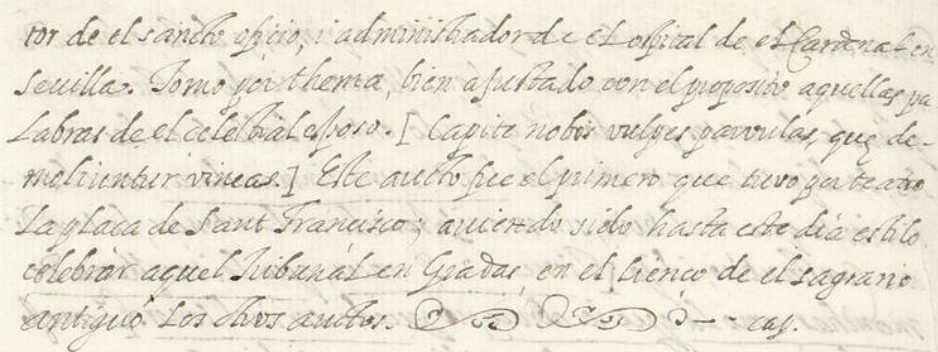 tor de el sancto oficio, i administrador de el ospital de el Cardenal en
Seuilla. Tomo por thema, bien ajustado con el proposito aquellas pa
labras de el celestial esposo. [ Capite nobis vulpes parvulas, quę de-
moliuntur vineas.] Este aucto fue el primero que tuvo por teatro
la plaça de Sant Francisco; auiendo sido hasta este dia estilo
celebrar aquel Tribunal en Gradas, en el lienço de el sagrario
antiguo los dhos auctos. cap.